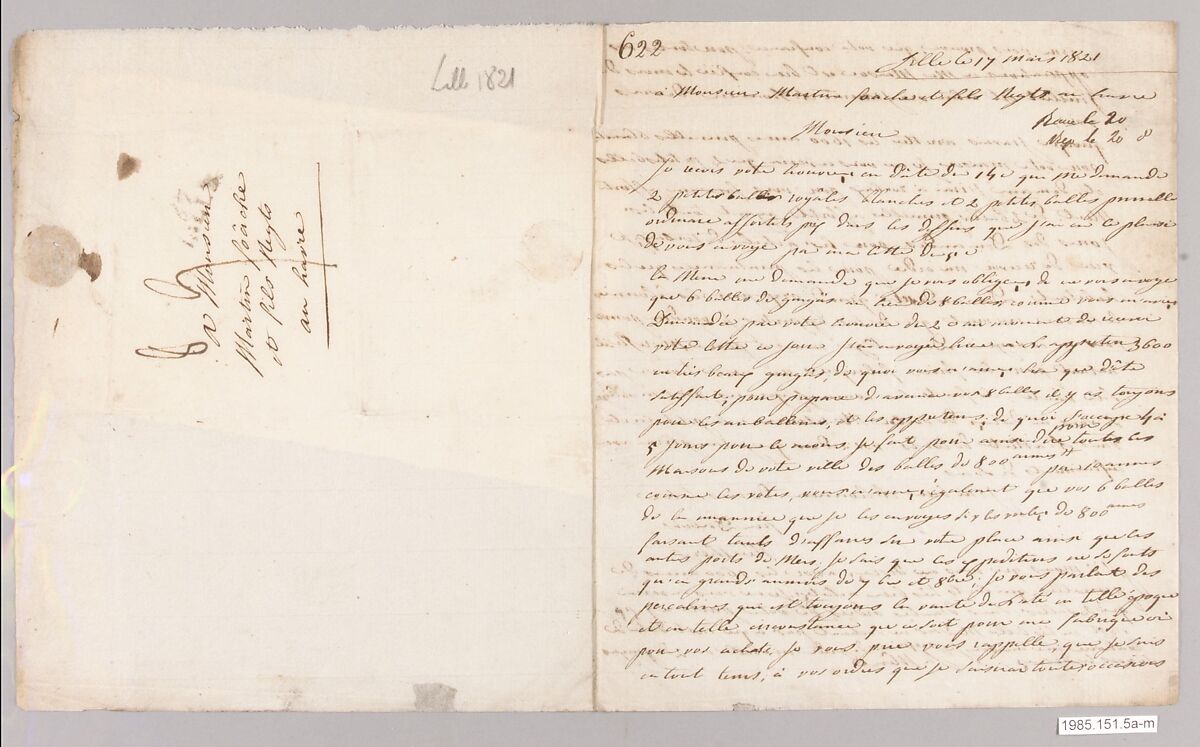 Lille 1821
A Monsieur
Martin foäche
et fils Negts
au havre
622
Lille le 17 mars 1821
à Monsieur Martin foäche et fils Negts au havre
Recue le 20
Rep le 20 d
Monsieur
Je recois vote honnoré en date du 14 c que me demande
2 petits balles royales blanches et 2 petits balles
ordinaire assortits dans les que j'ai eu le plaisir
de vous envoyé par ma lettre du
la meme me demande que je vous oblige, de ne vous envoyé
que 6 balles de gingas au lieu de 8 balles comme vous m'avez
Demandée par vote honnorée du 2 c au moment de recevoir
vote lettre ce jour j'ai envoyé 3600
en très beaux gingas, de quoi vous lieu que d'être
satisfait, pour preparé d'avance vos 8 balles il y as toujours
pour les emballeurs, et les appreteurs, de quoi 4 à
5 Jours pour le moins. Je fait pour ainsi dire pour toutes les
Maisons de vote ville des balles de 800 aunes
comme les votes, vous également que vos 6 balles
de la manniere que je les envoyes de 800 aunes
faisant tants d'affaires sur vote place ainsi que les
autres ports de Mers, Je sais que les expeditions ne se fonts
qu'en grands aunnes de 7 et 8 Je vous parlait des
percalines qui est toujours la vante de l'été en telle époque
et en telle circonstance que ce soit pour ma fabrique ou
pour vos achats, Je vous prie vous rappelle, que je suis
en tout tems, à vos ordres que je saiserai toute occasions
1985.151.5a-m